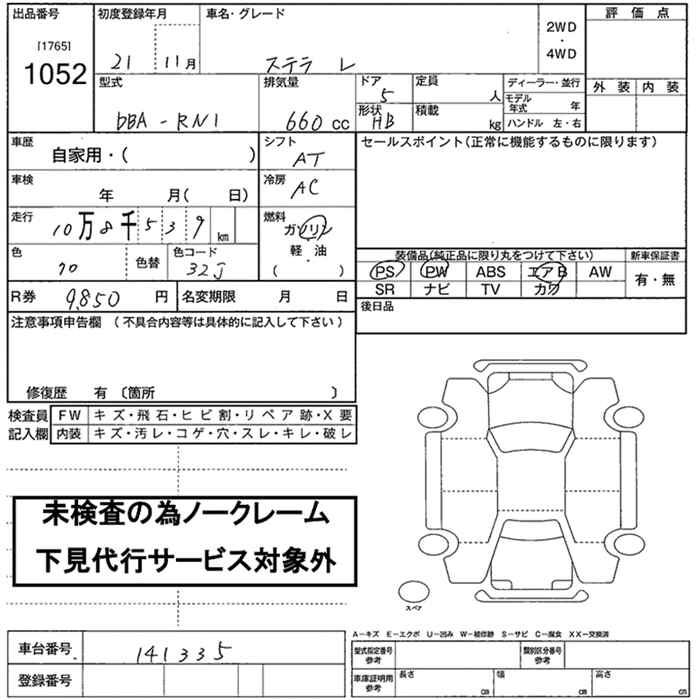 出品番号 初度登録年月 車名・グレード 2WD・4WD 評価点
[1765] 1052 21 11月 ステラ L
型式 排気量 ドア 定員 ディーラー・並行 外装 内装
DBA-RN1 660cc 5 人 モデル年式 年
形状 HB 積載 kg ハンドル 左・右
車歴 自家用・( ) シフト AT セールスポイント(正常に機能するものに限ります)
車検 年 月( 日) 冷房 AC
走行 10万8千539km 燃料 ガソリン 軽・油 ( ・ )
色 色替 色コード 32J
装備品(純正品に限り丸をつけて下さい) 新車保証書
PS PW ABS エアB AW 有・無
SR ナビ TV カワ
R券 9,850 円 名変期限 月 日 後日品
注意事項申告欄 (不具合内容等は具体的に記入して下さい)
修復歴 有 〔箇所 〕
検査員 FW キズ・飛石・ヒビ割・リペア跡・X要
記入欄 内装 キズ・汚レ・コゲ・穴・スレ・キレ・破レ
未検査の為ノークレーム
下見代行サービス対象外
スペア
A-キズ E-エクボ U-凹み W-補修跡 S-サビ C-腐食 XX-交換済
車台番号 141335 型式指定番号 参考 類別区分番号 参考
登録番号 車庫証明用 参考 長さ cm 幅 cm 高さ cm